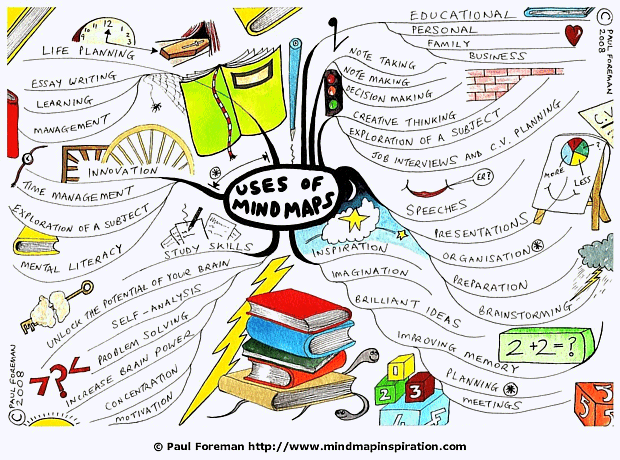 USES OF
MINDMAPS
EDUCATIONAL
PERSONAL
FAMILY
BUSINESS
NOTE TAKING
NOTE MAKING
DECISION MAKING
CREATIVE THINKING
EXPLORATION OF A SUBJECT
JOB INTERVIEWS AND C.V. PLANNING
C.V.
ER?
SPEECHES
MORE
LESS
PRESENTATIONS
ORGANISATION
PREPARATION
BRAINSTORMING
INSPIRATION
IMAGINATION
BRILLIANT IDEAS
IMPROVING MEMORY
PLANNING
MEETINGS
2+2=?
1
2
3
4
5
5
5
12
LIFE PLANNING
ESSAY WRITING
LEARNING
MANAGEMENT
INNOVATION
TIME MANAGEMENT
EXPLORATION OF A SUBJECT
MENTAL LITERACY
STUDY SKILLS
UNLOCK THE POTENTIAL OF YOUR BRAIN
SELF-ANALYSIS
PROBLEM SOLVING
INCREASE BRAIN POWER
CONCENTRATION
MOTIVATION
???
© PAUL FOREMAN 2008
© PAUL FOREMAN
2008
© Paul Foreman http://www.mindmapinspiration.com